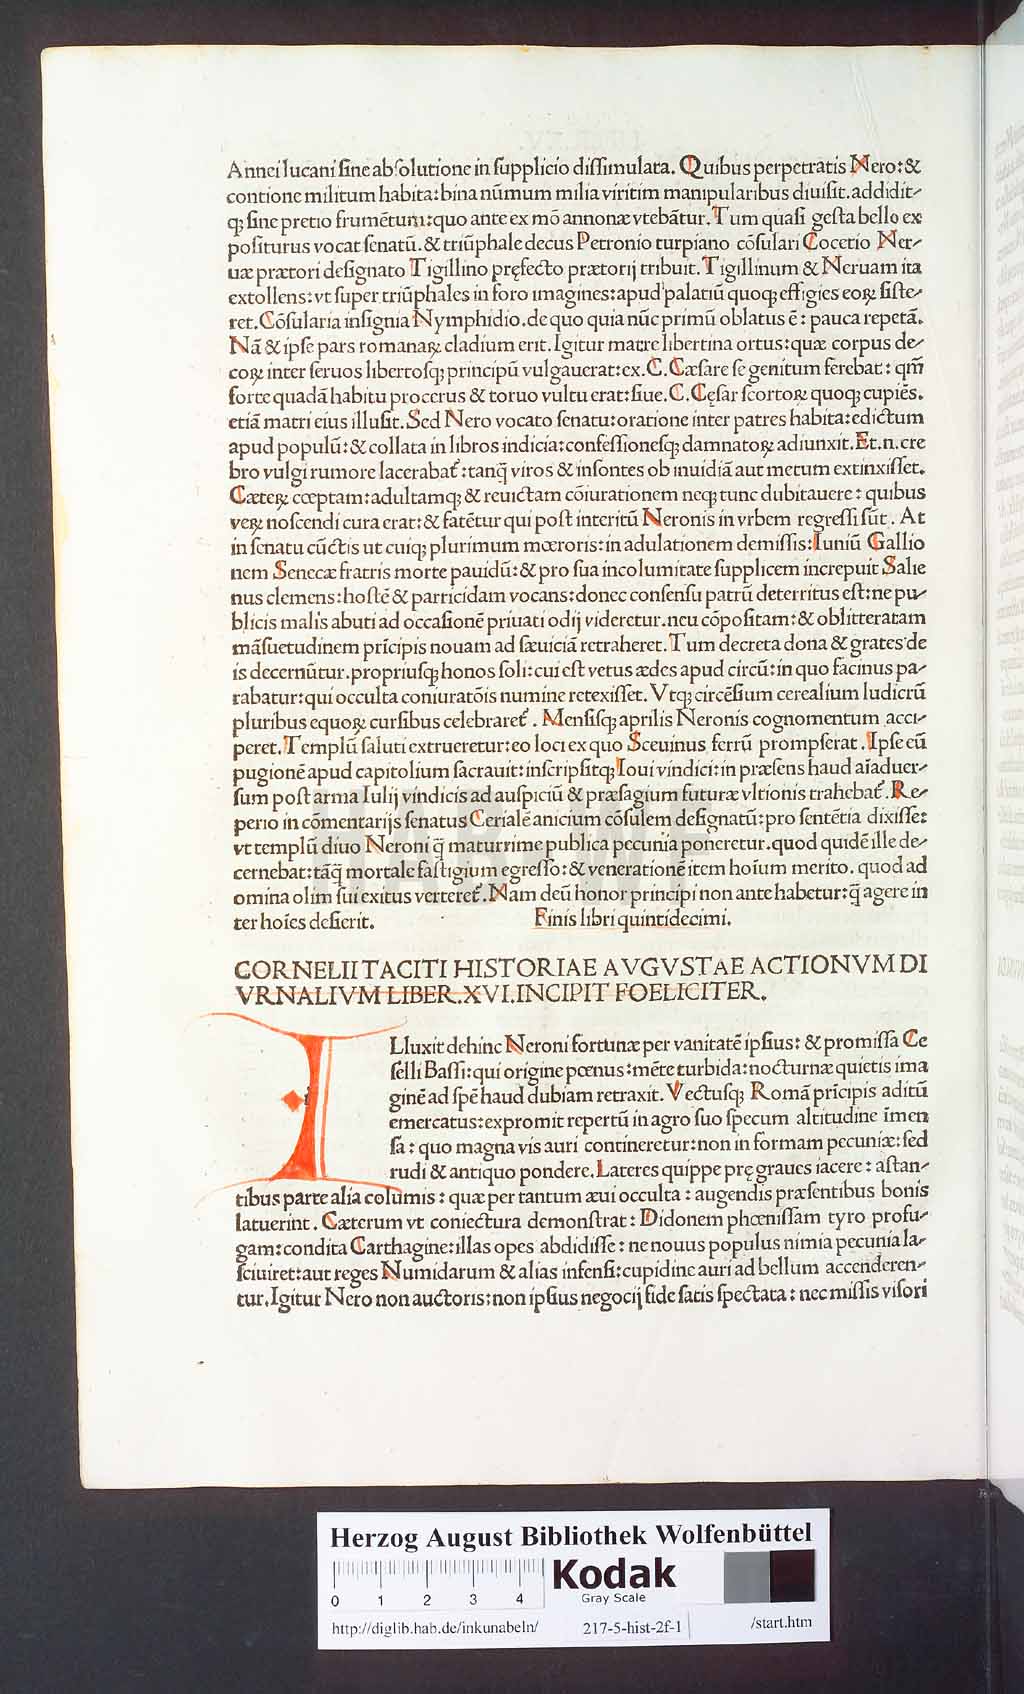 Annei lucani sine absolutione in supplicio dissimulata. Quibus perpetratis Nero: &
contione militum habita: bina nũmum milia viritim manipularibus diuisit. addidit-
qꝫ sine pretio frumẽtum: quo ante ex mõ annonæ vtebãtur. Tum quasi gesta bello ex
positurus vocat senatũ. & triũphale decus Petronio turpiano cõsulari Cocetio Ner-
uæ prætori designato Tigillino pręfecto prætorij tribuit. Tigillinum & Neruam ita
extollens: vt super triũphales in foro imagines: apud palatiũ quoqꝫ effigies eoꝝ siste-
ret. Cõsularia insignia Nymphidio. de quo quia nũc primũ oblatus ẽ: pauca repetã.
Nã & ipse pars romanaꝝ cladium erit. Igitur matre libertina ortus: quæ corpus de-
coꝝ inter seruos libertosqꝫ principũ vulgauerat: ex. C. Cæsare se genitum ferebat: qm̃
forte quadã habitu procerus & toruo vultu erat: siue. C. Cęsar scortoꝝ quoqꝫ cupiẽs.
etiã matri eius illusit. Sed Nero vocato senatu: oratione inter patres habita: edictum
apud populũ: & collata in libros indicia: confessionesqꝫ damnatoꝝ adiunxit. Et. n. cre
bro vulgi rumore lacerabat᷑: tanq̃ viros & insontes ob inuidiã aut metum extinxisset.
Cæteꝝ cœptam: adultamqꝫ & reuictam cõiurationem neqꝫ tunc dubitauere: quibus
veꝝ noscendi cura erat: & fatẽtur qui post interitũ Neronis in vrbem regressi sũt. At
in senatu cũctis ut cuiqꝫ plurimum mœroris: in adulationem demissis: Iuniũ Gallio
nem Senecæ fratris morte pauidũ: & pro sua incolumitate supplicem increpuit Salie
nus clemens: hostẽ & particidam vocans: donec consensu patrũ deterritus est: ne pu-
blicis malis abuti ad occasionẽ priuati odij videretur. neu cõpositam: & oblitteratam
mãsuetudinem prĩcipis nouam ad sæuiciã retraheret. Tum decreta dona & grates de
is decernũtur. propriusqꝫ honos soli: cui est vetus ædes apud circũ: in quo facinus pa-
rabatur: qui occulta coniuratõis numine retexisset. Vtqꝫ circẽsium cerealium ludicrũ
pluribus equoꝝ cursibus celebraret᷑. Mensisqꝫ aprilis Neronis cognomentum acci-
peret. Templũ saluti extrueretur: eo loci ex quo Sceuinus ferrũ prompserat. Ipse cũ
pugionẽ apud capitolium sacrauit: inscripsitqꝫ Ioui vindici: in præsens haud aĩaduer-
sum post arma Iulij vindicis ad auspiciũ & præsagium futuræ vltionis trahebat᷑. Re-
perio in cõmentarijs senatus Cerialẽ anicium cõsulem designatũ: pro sentẽtia dixisse:
vt templũ diuo Neroni q̃ maturrime publica pecunia poneretur. quod quidẽ ille de-
cernebat: tãq̃ mortale fastigium egresso: & venerationẽ item hoĩum merito. quod ad
omina olim sui exitus verteret᷑. Nam deũ honor principi non ante habetur: q̃ agere in
ter hoĩes desierit. Finis libri quintidecimi.
CORNELII TACITI HISTORIAE AVGVSTAE ACTIONVM DI
VRNALIVM LIBER. XVI. INCIPIT FOELICITER.
ILluxit dehinc Neroni fortunæ per vanitatẽ ipsius: & promissa Ce
selli Bassi: qui origine pœnus: mẽte turbida: nocturnæ quietis ima
ginẽ ad spẽ haud dubiam retraxit. Vectusqꝫ Romã prĩcipis aditũ
emercatus: expromit repertũ in agro suo specum altitudine ĩmen
sa: quo magna vis auri contineretur: non in formam pecuniæ: sed
rudi & antiquo pondere. Lateres quippe pręgraues iacere: astan-
tibus parte alia columis: quæ per tantum æui occulta: augendis præsentibus bonis
latuerint. Cæterum vt coniectura demonstrat: Didonem phœnissam tyro profu-
gam: condita Carthagine: illas opes abdidisse: ne nouus populus nimia pecunia la-
sciuiret: aut reges Numidarum & alias infensi: cupidine auri ad bellum accenderen-
tur. Igitur Nero non auctoris: non ipsius negocij fide satis spectata: nec missis visori
HAB WF
Herzog August Bibliothek Wolfenbüttel
0 1 2 3 4
Kodak
Gray Scale
http://diglib.hab.de/inkunabeln/ 217-5-hist-2f-1 /start.htm